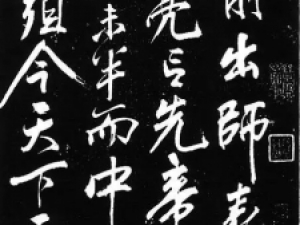 前出師表
亮言先帝
未半而中
殂今天下三